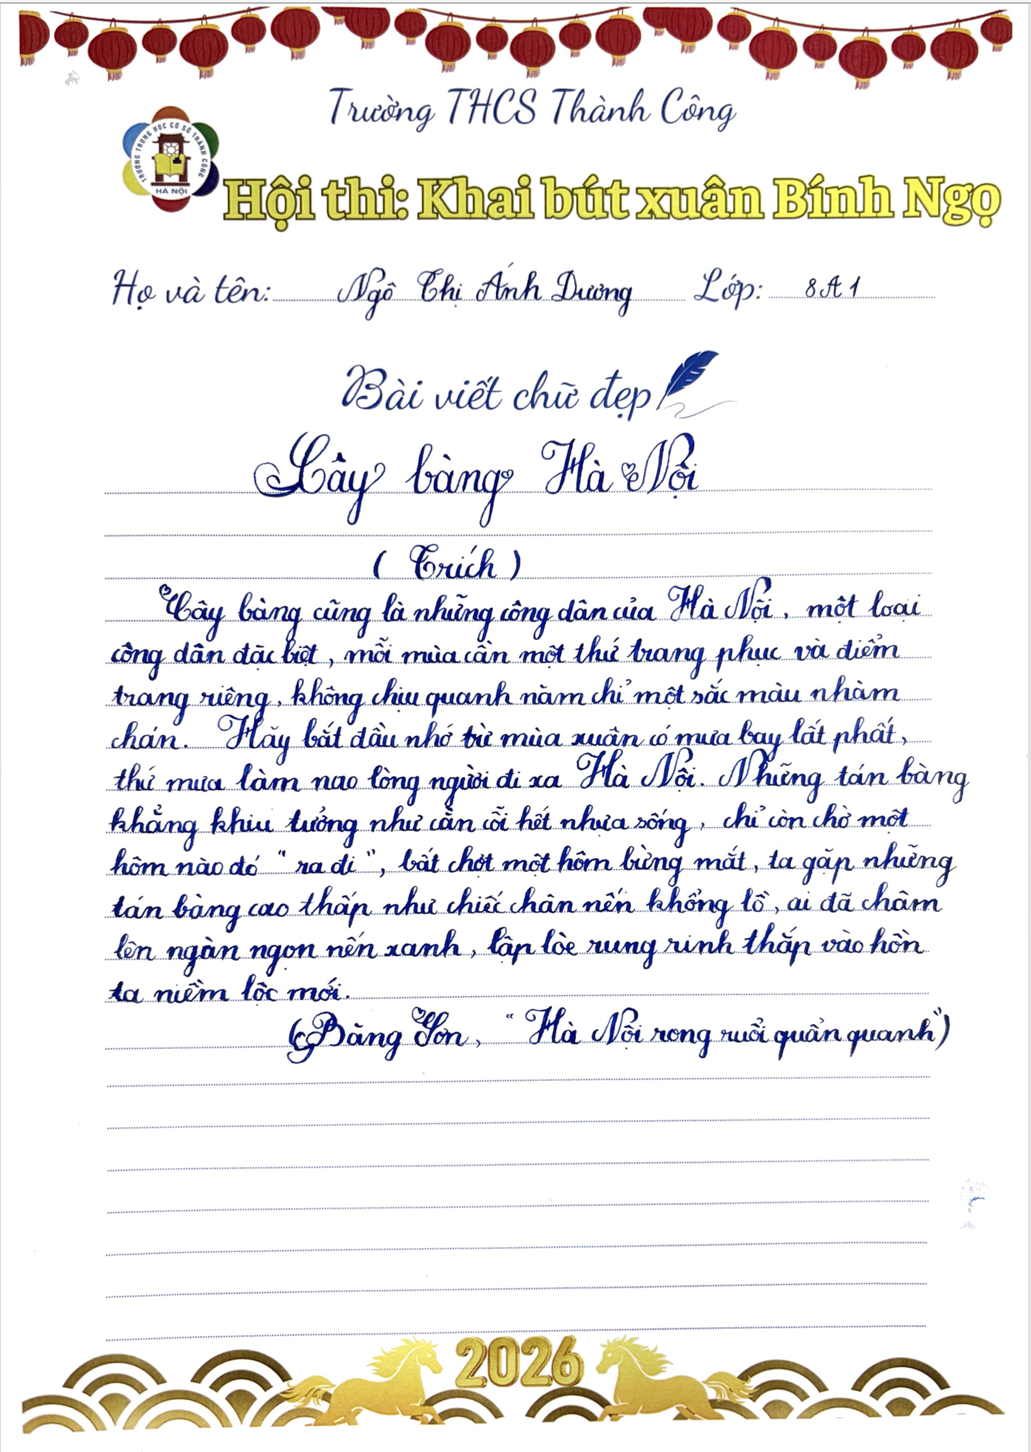 Trường THCS Thành Công
TRƯỜNG TRUNG HỌC CƠ SỞ THÀNH CÔNG
HÀ NỘI
Hội thi: Khai bút xuân Bính Ngọ
Họ và tên: Ngô Thị Ánh Dương Lớp: 8A1
Bài viết chữ đẹp
Cây bàng Hà Nội
( Trích )
Cây bàng cũng là những công dân của Hà Nội, một loại
công dân đặc biệt, mỗi mùa cần một thứ trang phục và điểm
trang riêng, không chịu quanh năm chỉ một sắc màu nhàm
chán. Hãy bắt đầu nhớ từ mùa xuân có mưa bay lất phất,
thứ mưa làm nao lòng người đi xa Hà Nội. Những tán bàng
khẳng khiu tưởng như cằn cỗi hết nhựa sống, chỉ còn chờ một
hôm nào đó "ra đi", bất chợt một hôm bừng mắt, ta gặp những
tán bàng cao thấp như chiếc chân nến khổng lồ, ai đã châm
lên ngàn ngọn nến xanh, lập lòe rung rinh thắp vào hồn
ta niềm lộc mới.
(Băng Sơn, "Hà Nội rong ruổi quẩn quanh")
2026